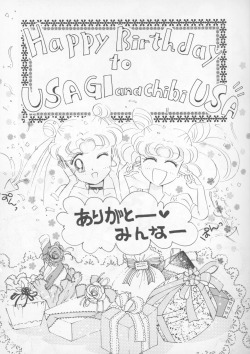 Happy Birthday
to
USAGI and chibi USA
ありがとー♥
みんなー
ぱーん
ぱーん